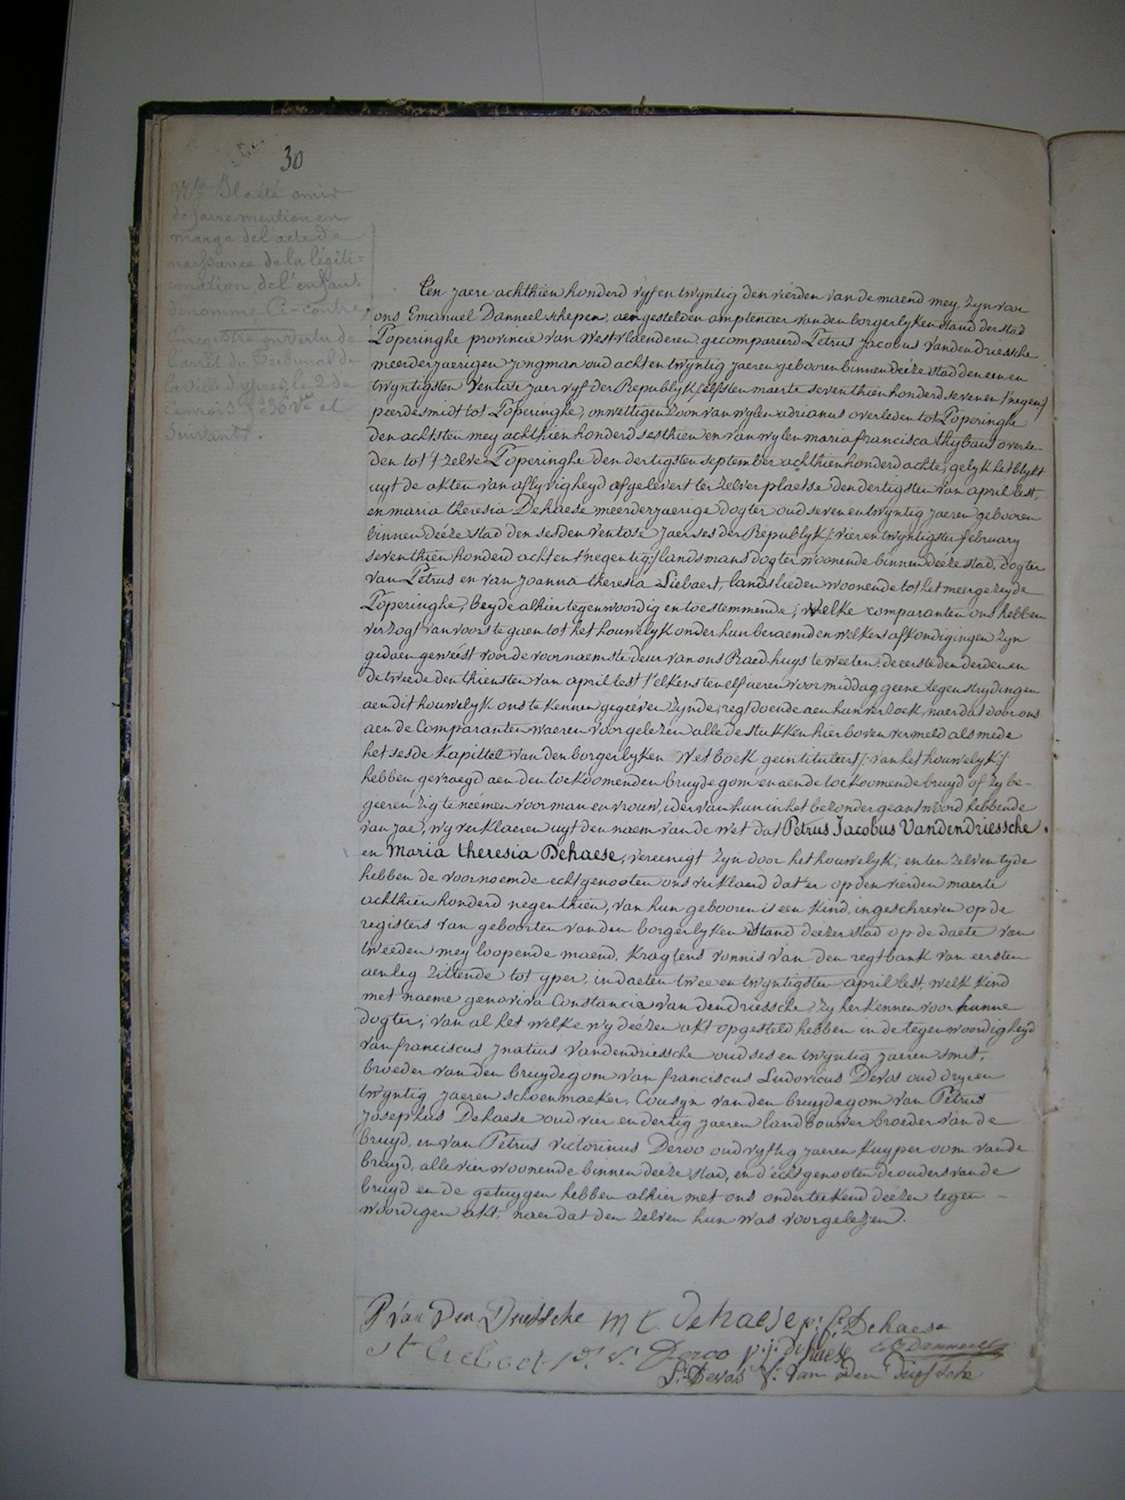 30
Blaéré omis
de faire mention en
marge de l'acte de
naissance de la légiti=
mation de l'enfant
denommé Ci-contre
Tribunal de
suivants.
Een jaere achthien honderd vyf en twyntig den vierden van de maend mey, zyn voor
ons Emanuel Danneel schepen, aengestelden amptenaer van den borgerlyken stand der stad
Poperinghe provincie van Westvlaenderen gecompareerd Petrus Jacobus Vandendriessche
meerderjaerigen jongman oud acht en twyntig jaeren gebooren binnen deéze stad den een en
twyntigsten Ventose jaer vyf der Republyk /: elfsten maerte seventhien honderd seven en /negen/
peerdesmidt tot Poperinghe, onwettigen zoon van wylen adrianus overleden tot Poperinghe
den achtsten mey achthien honderd sesthien en van wylen maria francisca thybaut overle-
den tot 't zelve Poperinghe den dertigsten september achthien honderd achte, gelyk het blykt
uyt de akten van aflyvigheyd afgelevert ter zelver plaetse den dertigsten van april lest,
en maria theresia Dehaese meerderjaerige dogter oud seven en twyntig jaeren gebooren
binnen deéze stad den sesden ventose jaer ses der Republyk /: vier en twyntigsten february
seventhien honderd acht en 't negentig:/ landsmans dogter woonende binnen deéze stad, dogter
van Petrus en van joanna theresia Liebaert, landslieden woonende tot het meergezeyde
Poperinghe, beyde alhier tegenwoordig en toestemmende; Welke comparanten ons hebben
verzogt van voorste gaen tot het houwelyk onder hun beraemd en welkers afkondigingen zyn
gedaen geweest voor de voornaemste deur van ons Raedhuys te weeten: de eerste den derden en
de tweede den thiensten van april lest t'elkens ten elf ueren voormiddag geene tegenstrydingen
aen dit houwelyk ons te kennen gegeéven zynde, regt doende aen hun verzoek, naer dat door ons
aen de Comparanten waeren voorgelezen alle de stukken hier boven vermeld als mede
het sesde kapittel van den borgerlyken Wetboek geintituleert /: van het houwelyk:/
hebben gevraegd aen den toekoomenden bruydegom en aen de toekoomende bruyd of zy be-
geeren zig te neémen voor man en vrouw, ider van hun in het bezonder geantwoord hebbende
van jae, wy verklaeren uyt den naem van de wet dat Petrus Jacobus Vandendriessche
en Maria theresia Dehaese, vereenigt zyn door het houwelyk; en ten zelven tyde
hebben de voornoemde echtgenooten ons verklaerd dat er op den vierden maerte
achthien honderd negenthien, van hun gebooren is een kind, ingeschreven op de
registers van geboorten van den borgerlyken Stand deezer stad op de daete van
tweeden mey loopende maend, kragtens vonnis van den regtbank van eersten
aenleg zittende tot yper, in daeten twee en twyntigsten april lest, welk kind
met naeme genoviva Constancia van dendriessche zy herkennen voor hunne
dogter; van al het welke wy deézen akt opgesteld hebben in de tegenwoordigheyd
van franciscus jnatius Vandendriessche oud ses en twyntig jaeren smit,
broeder van den bruydegom van franciscus Ludovicus Devos oud dry en
twyntig jaeren schoenmaeker, Cousyn van den bruydegom van Petrus
Josephus Dehaese oud vier en dertig jaeren landbouwer broeder van de
bruyd, en van Petrus victorinus Deroo oud vyftig jaeren kuyper oom van de
bruyd, alle vier woonende binnen deéze stad, en d'echtgenooten de ouders van de
bruyd en de getuygen hebben alhier met ons onderteekend deézen tegen-
woordigen akt, naer dat den zelven hun was voorgelezen.
P Van Den Driessche M t. Dehaese p: f: Dehaese
Deroo p. j: Dehaese E. Danneel
f: Devos f: Van Den Driessche